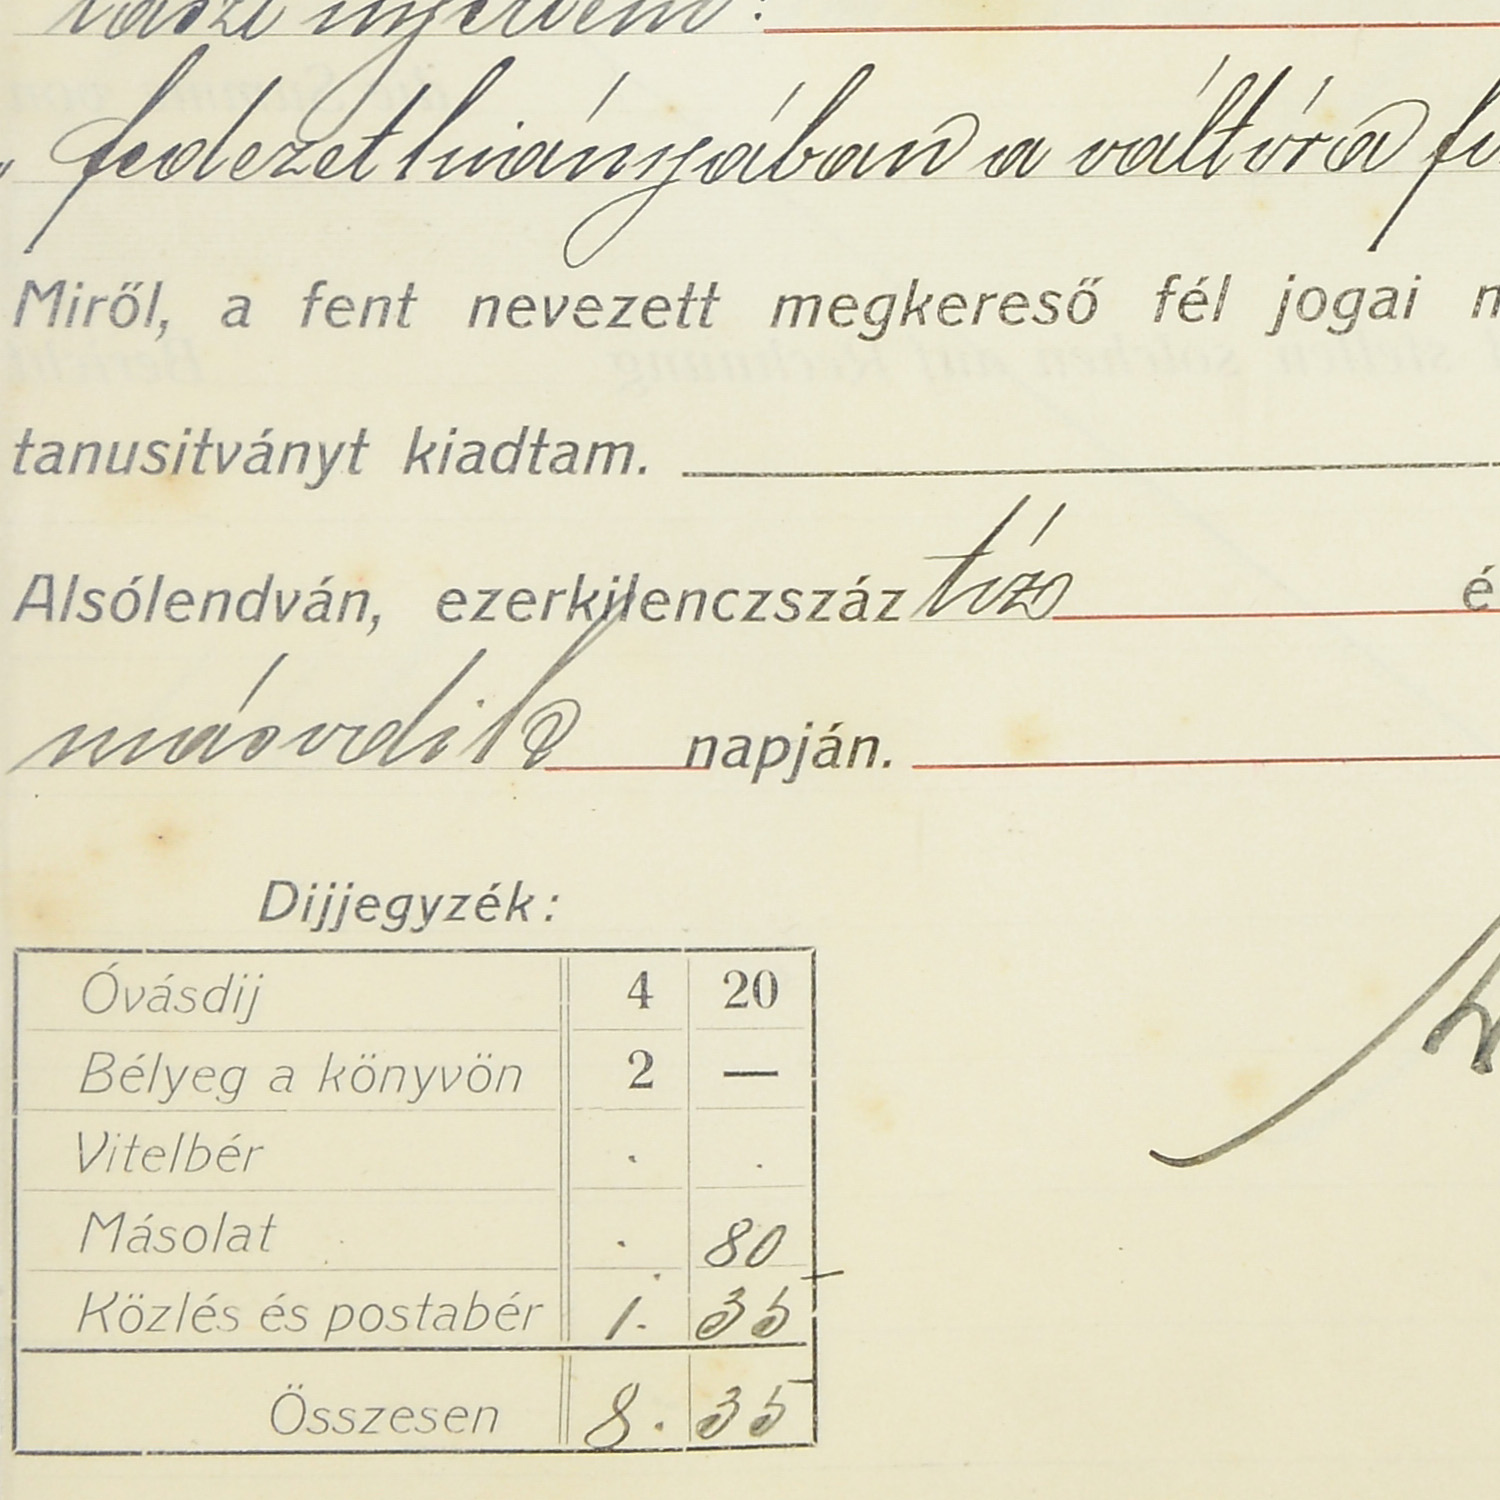 fedezet hiányában a váltóra
Miről, a fent nevezett megkereső fél jogai
tanusitványt kiadtam.
Alsólendván, ezerkilenczszáz tíz é
második napján.
Dijjegyzék:
Óvásdij 4 20
Bélyeg a könyvön 2 —
Vitelbér . .
Másolat . 80
Közlés és postabér 1. 35
Összesen 8. 35